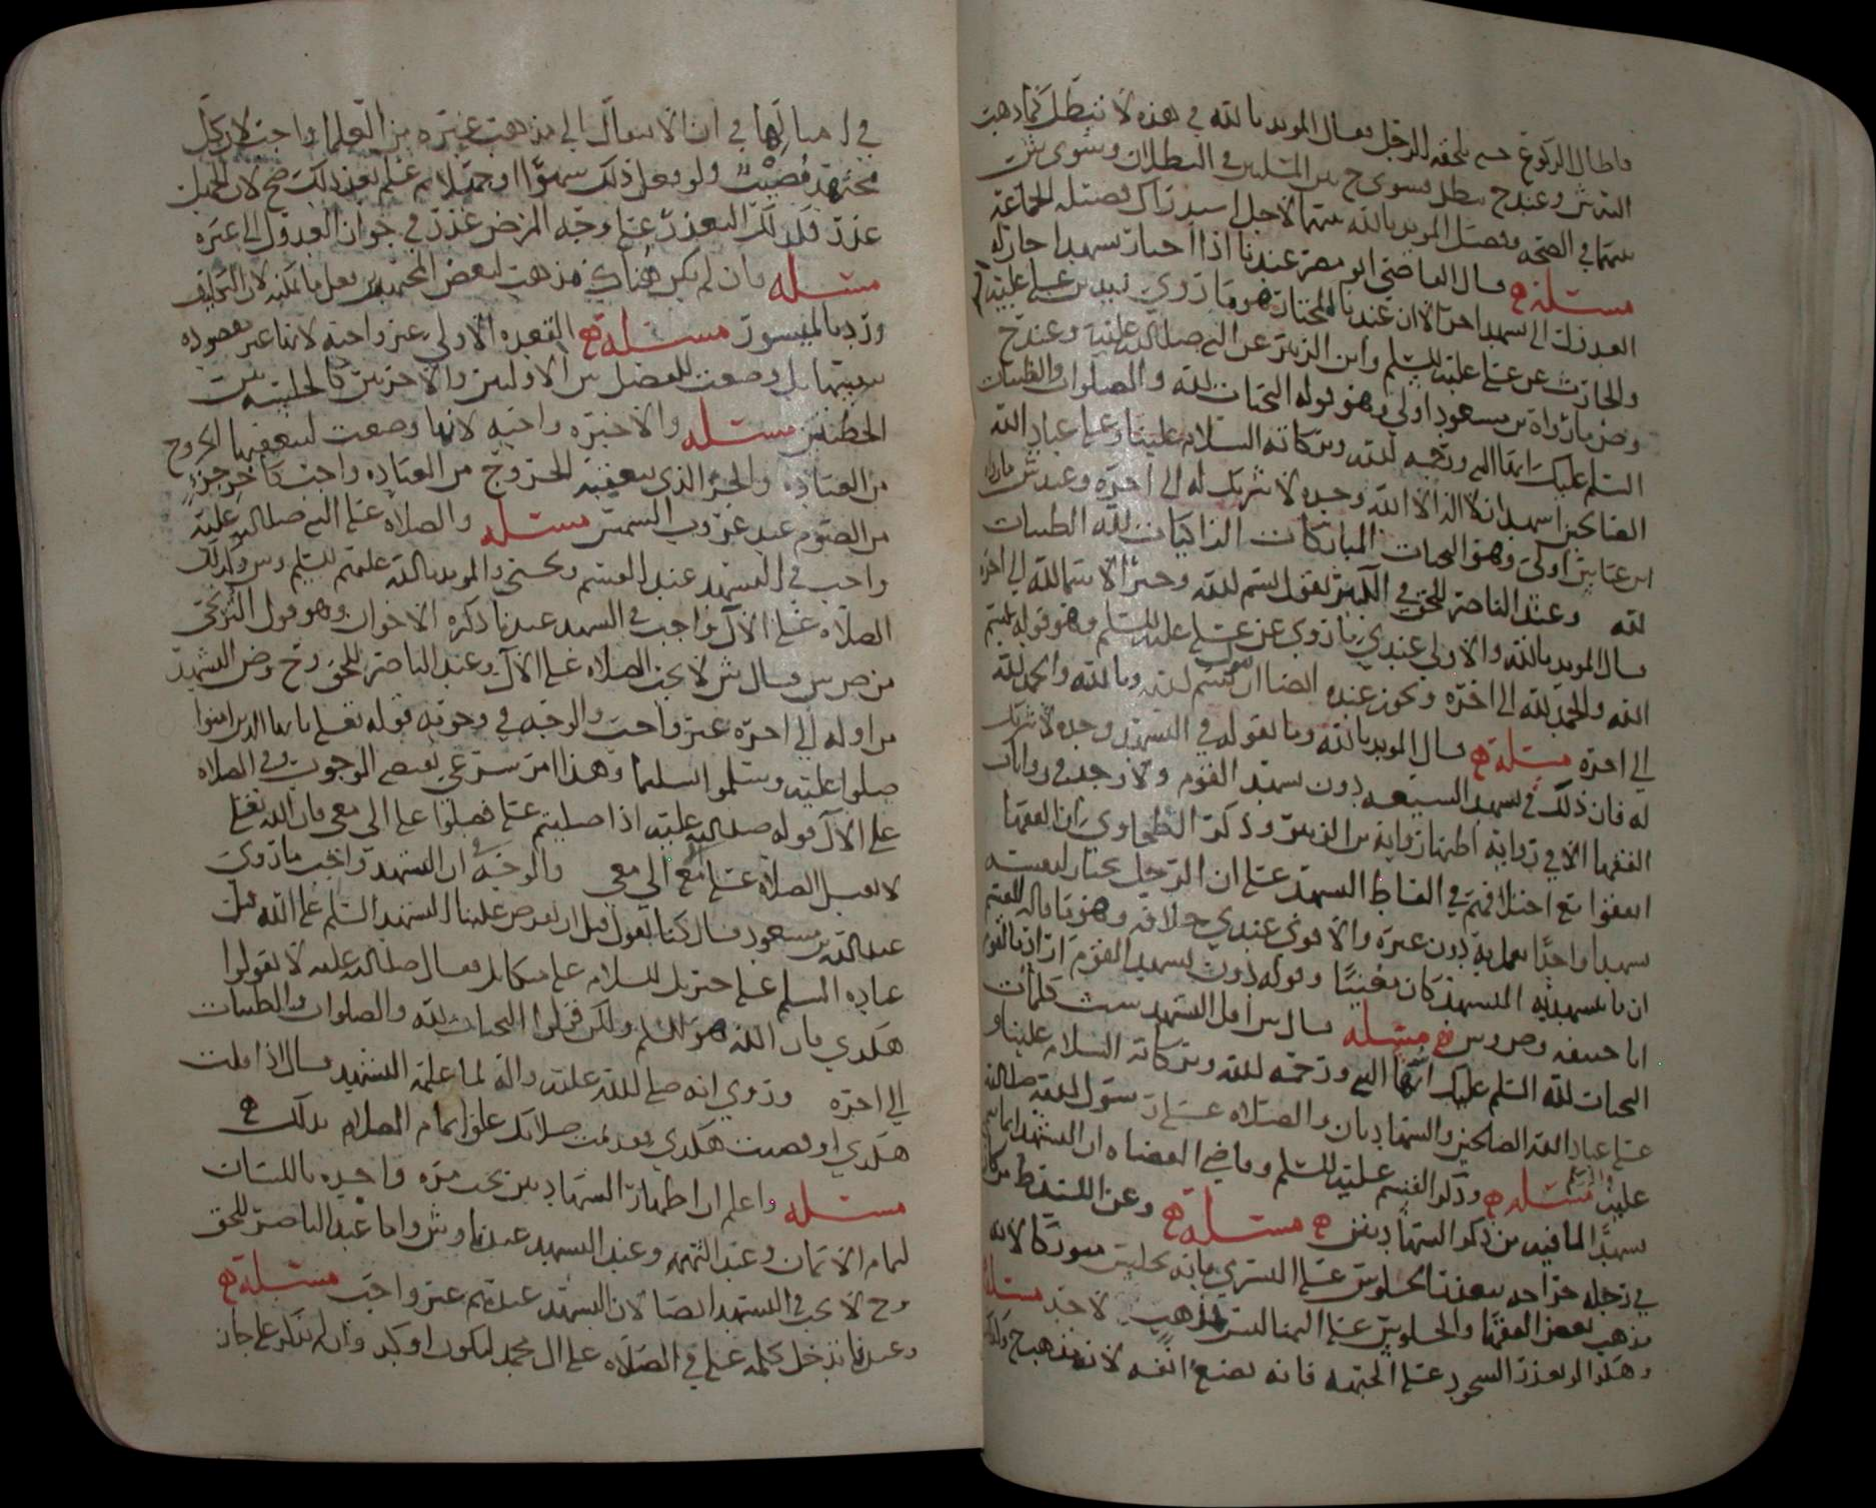 فاطال الركوع حتى يلحقه الرجل فقال المويد بالله في هذه لا تبطل كما ذهب
اليه ش وعند ح تبطل فسوى ح بين المسلتين في البطلان وسوى ش
بينهما في الصحه وفصل المويد بالله بينهما لاجل
مسئلة قال القاضي ابو مضر عندنا اذا اختار تشهدا جاز له
العدول الى تشهد اخر الا ان عندنا المختار هو ما روي زيد بن علي عليه
والحارث عن علي عليه السلم وابن الزبير عن النبي صلى الله عليه وعند ح
وص ما رواه بن مسعود اولى وهو قوله التحيات لله والصلوات والطيبات
السلم عليك ايها النبي ورحمه الله وبركاته السلام علينا وعلى عباد الله
الصالحين اشهد ان لا اله الا الله وحده لا شريك له الى اخره وعند ش ما رواه
ابن عباس اولى وهو التحيات المباركات الزاكيات لله الطيبات
لله وعند الناصر للحق في الكبير يقول بسم الله وخير الاسما لله الى اخره
قال المويد بالله والاولى عندي ما روي عن علي عليه السلم وهو قوله بسم
الله والحمد لله الى اخره ويجوز عنده ايضا ان يقول بسم الله وبالله والحمد لله
الى اخره مسئلة قال المويد بالله وما نقوله في التشهد وحده لا شريك
له فان ذلك في تشهد الشيعه دون تشهد القوم ولا يوجد في روايات
الفقها الا في رواية اظنها رواية بن الزبير وذكر الطحاوي ان الفقها
اتفقوا مع اختلافهم في الفاظ التشهد على ان الرجل يختار لنفسه
تشهدا واحدا يعمل به دون غيره والاقوى عندي خلافه وهو ما قاله القسم
ان ما تشهد به المتشهد كان مغنيا وقوله دون تشهد القوم اراد بالقوم
ابا حنيفه وص و س مسئله قال س اقل التشهد ست كلمات
التحيات لله السلم عليك ايها النبي ورحمه الله وبركاته السلام علينا و
على عباد الله الصالحين والشهادتان والصلاه على رسول الله صلى الله
عليه مسئلة وذكر القسم عليه السلم وقاضي القضاه ان التشهد انما سمي
تشهدا لما فيه من ذكر الشهادتين مسئلة وعن
في رجله جراحه يتعذر الجلوس على اليسرى فانه يجلس متوركا لانه
مذهب بعض الفقها والجلوس على اليمنا ليس مذهب لاحد مسئلة
وهكذا لو تعذر السجود على الجبهه فانه يضع انفه لانه مذهب ح وكذلك
في امثالها في ان الانتقال الى مذهب غيره من العلما واجب لان كل
مجتهد مصيب ولو فعل ذلك سهوا او جهلا ثم علم بعد ذلك صح لان الجهل
عذر فكذلك التعذر على وجه المرض عذر في جواز العدول الى غيره
مسئله فان لم يكن هناك مذهب لبعض المجتهدين فعل ما يمكنه لان التكليف
ورد بالميسور مسئلة القعده الاولى غير واجبه لانها غير مقصوده
بعينها بل وضعت للفصل بين الاوليين والاخريين كالجلسه بين
الخطبتين مسئله والاخيره واجبه لانها وضعت ليتعقبها الخروج
من العباده والجزء الذي يتعقبه الخروج من العباده واجب كاخر جزء
من الصوم عند غروب الشمس مسئله والصلاه على النبي صلى الله عليه
واجب في التشهد عند القسم ويحيى والمويد بالله عليهم السلم وس وكذلك
الصلاه على الال واجب في التشهد عندنا ذكره الاخوان وهو قول الكرخي
من ص س وقال ش لا يجب الصلاه على الال وعند الناصر للحق وح وص التشهد
من اوله الى اخره غير واجب والوجه في وجوبه قوله تعالى يا ايها الذين امنوا
صلوا عليه وسلموا تسليما وهذا امر شرعي يقتضي الوجوب وفي الصلاه
على الال قوله صلى الله عليه اذا صليتم علي فصلوا على الي معي فان الله تعالى
لا يقبل الصلاه علي الا مع الي معي والوجه في ان التشهد واجب ما روي
عبدالله بن مسعود قال كنا نقول قبل ان يفرض علينا التشهد السلم على الله قبل
عباده السلم على جبريل السلام على ميكايل فقال صلى الله عليه لا تقولوا
هكذي فان الله هو السلم ولكن قولوا التحيات لله والصلوات والطيبات
الى اخره وروي انه صلى الله عليه واله لما علمه التشهد قال اذا قلت
هكذي او قضيت هكذي فقد تمت صلاتك علق اتمام الصلاه بذلك
مسئله واعلم ان اظهار الشهادتين تجب مره واحده باللسان
لتمام الايمان وعند التهمه وعند التشهد عندنا وش واما عند الناصر للحق
وح لا يجب في التشهد ايضا لان التشهد عندهم غير واجب مسئلة
وعندنا تدخل كلمه على في الصلاه على ال محمد ليكون اوكد وان لم تذكر على جاز